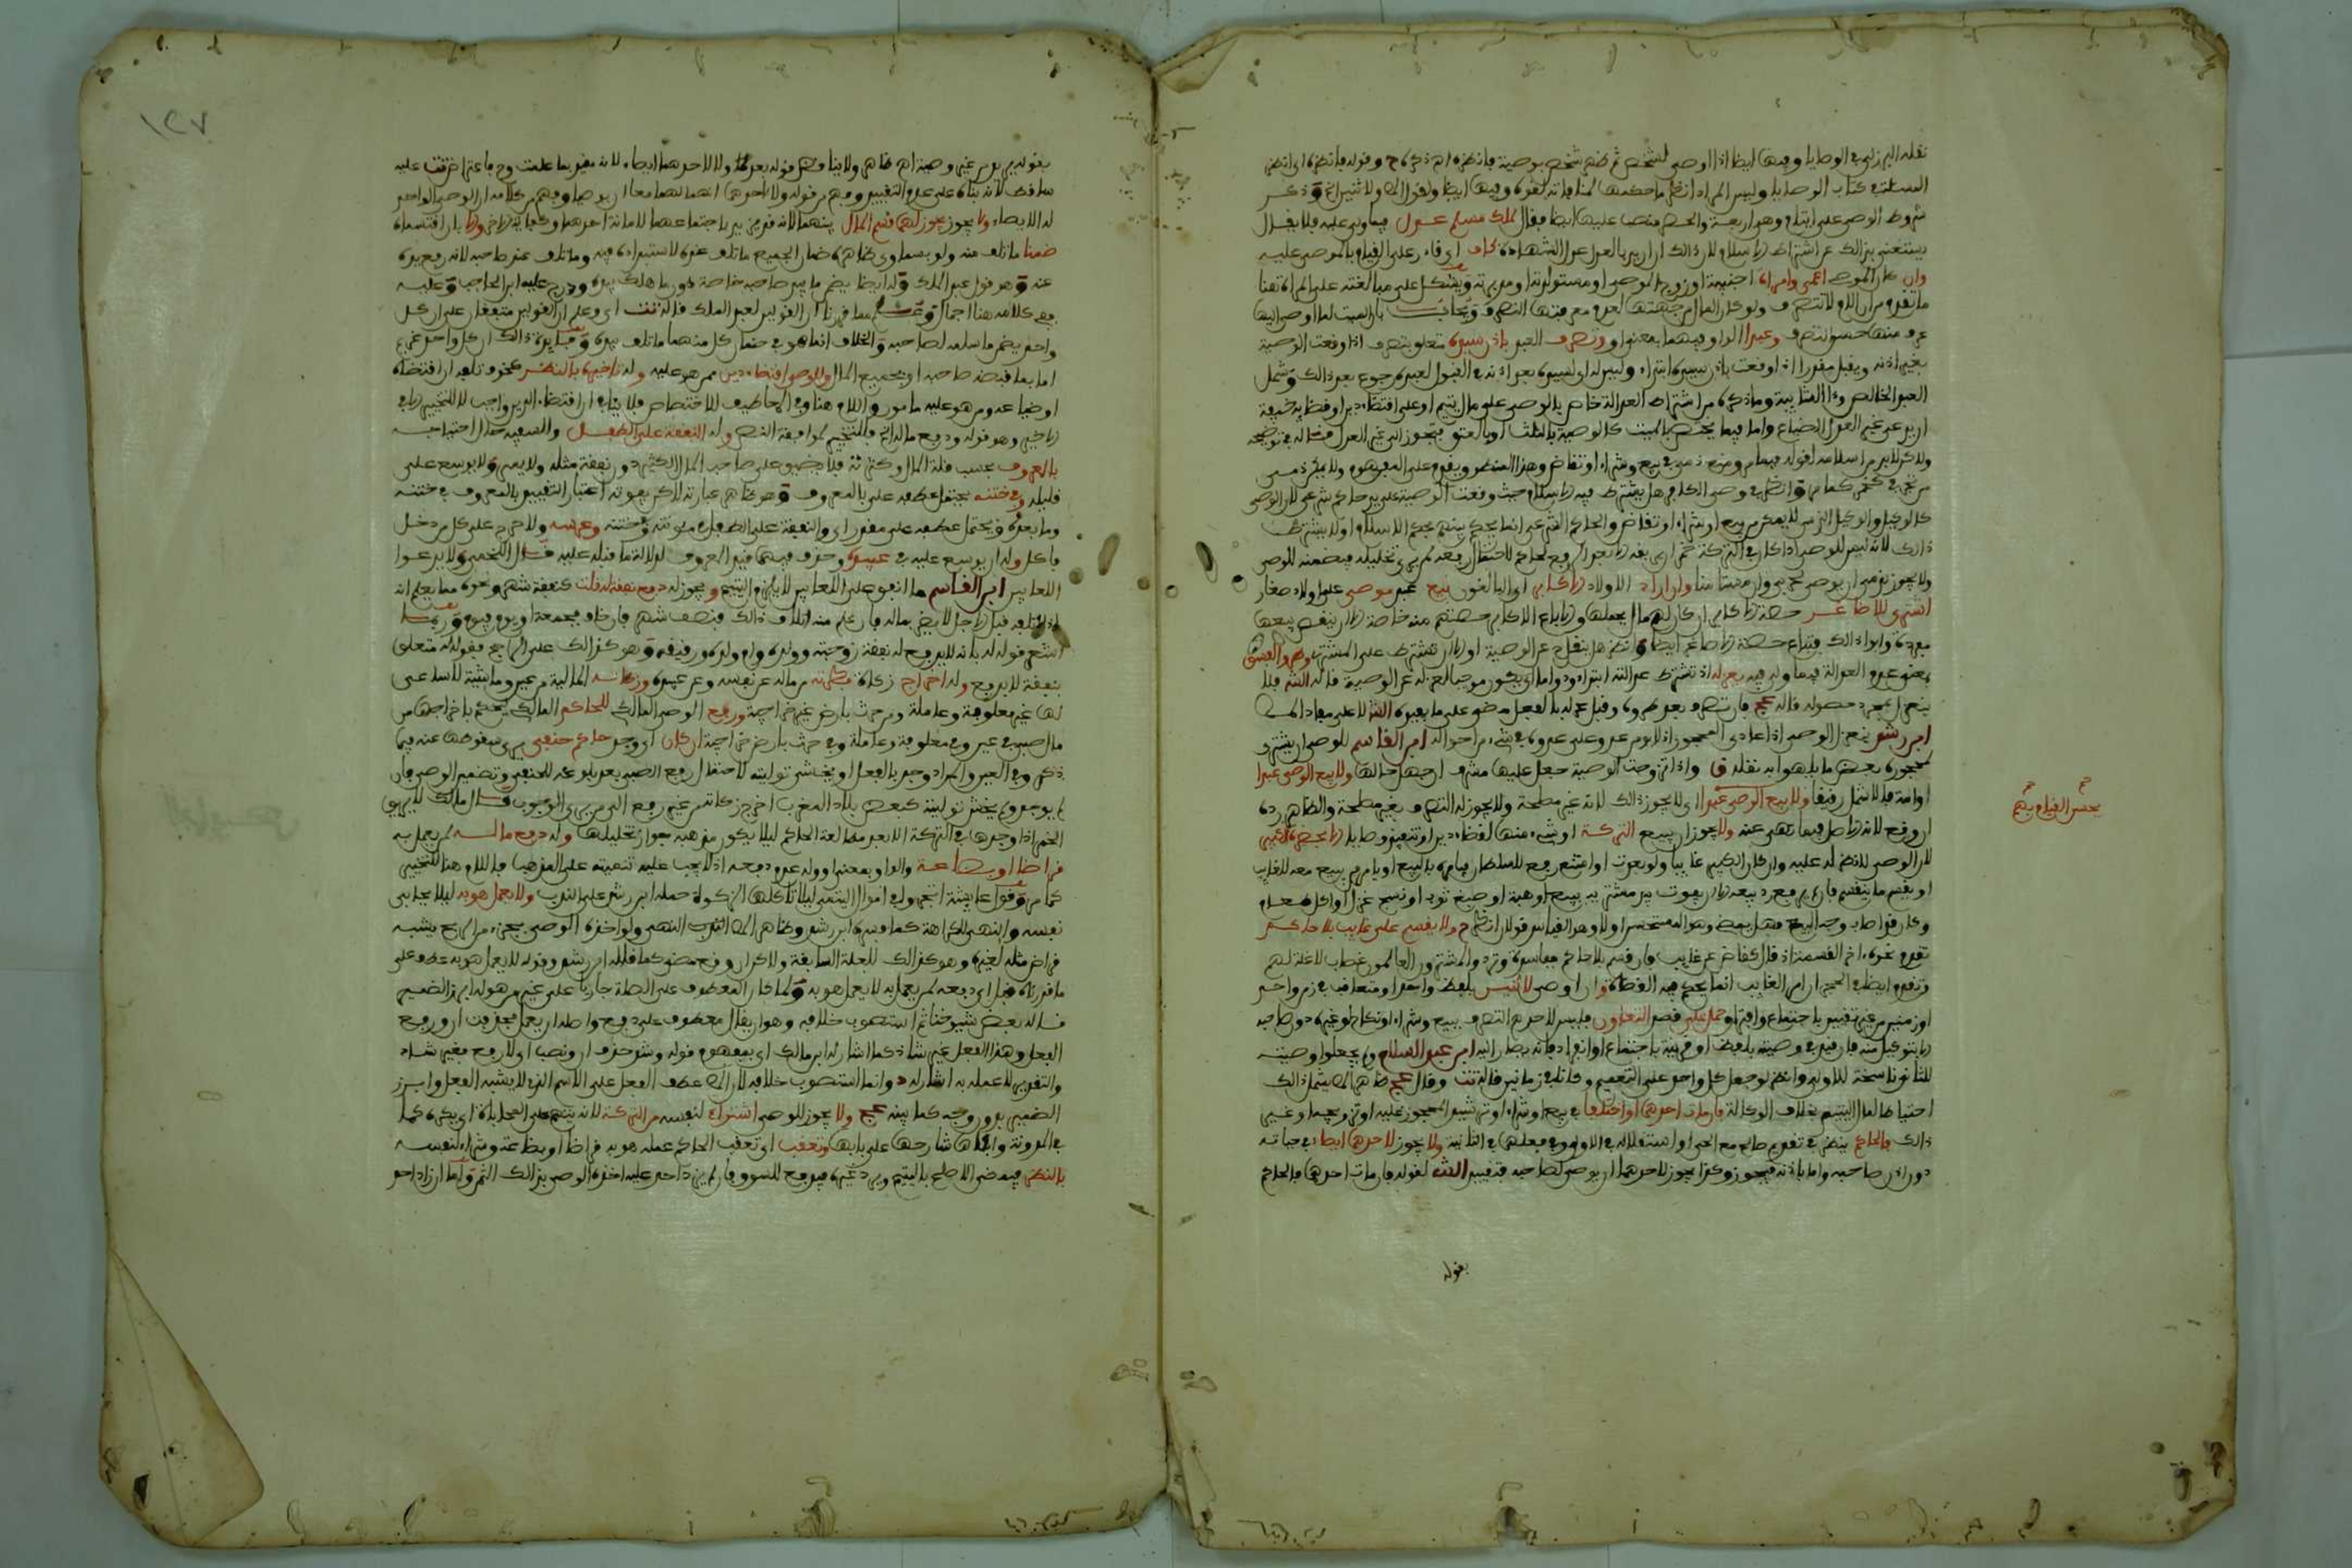 نقله البرزلي في الوصايا وفيها ايضا اذا اوصى لشخص ثم ظهر شخص بوصية فانظره اهـ ذكره ح وقوله فانظره اى انظر
المسئلة في كتاب الوصايا وليس المراد انظر ما حكمها وذكر
شروط الوصي على ايتام وهو اربعة والخامس فقال لمكلف مسلم عدل فيما ولي عليه فلا يقال
يستغنى بذلك عن اشتراط الاسلام لان ذلك اريد بالعدل عدل الشهادة كاف اى قادر على القيام بالموصى عليه
وان كان الموصى اعمى وامراة اجنبية او زوجة الموصى او مستولدته او مدبرته ويشكل على مبالغته على المراة هنا
ما تقدم من ان الام لا تتصرف ولو كل المال من جهتها لعدم معرفتها التصرف ويجاب بان الميت لما اوصى اليها
عرف منها حسن التصرف وعبدا الواو فيهما بمعنى او وتصرف العبد باذن سيده متعلق بتصرف اذا وقعت الوصية
بغير اذنه ويقبل مقدرا اذا وقعت باذن سيده ابتداء وليس له اى لسيده بعد اذنه في القبول لعبده رجوع بعد ذلك وشمل
العبد الخالص وذا الشايبة وما ذكره من اشتراط العدالة خاص بالوصى على مال يتيم او على اقتضاء دين او قضايه خيفة
ان يدعى غير العدل الضياع واما فيما يختص بالميت كالوصية بالثلث او بالعتق فيجوز الى غير العدل قاله في توضيحه
ولاكن لا بد من اسلامه لقوله فيما مر ومنع ذمي في بيع وشراء او تقاض
من نجز في خمر كما مر وانظر في وصى الكافر هل يشترط فيه الاسلام حيث وقعت الوصية على يد حاكم شرعى لان الوصى
كالوكيل والوكيل الذمى لا يمكن من بيع او شراء او تقاض والحاكم الشرعى انما يحكم بينهم بحكم الاسلام او لا يشترط
ذلك لانه ليس للوصى اذا كان في التركة خمر اراقة الا بعد الرفع لحاكم لاحتمال رفعه لمن يرى تخليله فيضمنه للوصى
ولا يجوز لذمى ان يوصى لحربى وان مستامنا وان اراد الاولاد الاكابر اى البالغون بيع عبد موصى على اولاد صغار
اشترى للاصاغر حصة الاكابر ان كان لهم مال يحملها والا باع الاكابر حصتهم منه خاصة الا ان ينقص بيعها
مفردة وابوا ذلك فتباع حصة الاصاغر ايضا وانظر هل ينقل عن الوصية او الا ان تشترط على المشترى وطرو الفسق
يعنى عدم العدالة فيما ولي فيه يعزله اذ تشترط عدالته ابتداء ودواما اى يكون موجبا لعزله عن الوصية قاله الشـ فلا
ينعزل بمجرد حصوله قاله عج فان تصرف بعد طروه وقبل عزله بالفعل مضى على ما يفيده الشـ لا على مفاد المص
ابن رشد يعزل الوصى اذا عادى المحجور اذ لا يومن عدو على عدوه في شيء من احواله ابن القاسم للوصى ان يشترى
لمحجوره بعض ما يلهو به نقله ق واذا تزوجت الوصية جعل عليها مشرف لان جهل حالها ولا يبيع الوصى عبدا
او امة فلا تشمل رفيقا ولا يبيع الوصى عبدا اى لا يجوز ذلك لانه غير مصلحة ولا يجوز له التصرف بغير مصلحة والظاهر رده
ان وقع لان الاصل فيما نهى عنه ولا يجوز ان يبيع التركة او شيء منها لقضاء دين او تنفيذ وصايا الا بحضرة الكبير
لان الوصى لا نظر له عليه وان كان الكبير غايبا ولو بعدت او امتنع رفع للسلطان فيامره بالبيع او يامر من يبيع معه للغايب
او يقسم ما ينقسم فان لم يرفع رد بيعه الا ان يفوت بيد مشتريه ببيع او هبة او صبغ ثوب او نسج غزل او اكل طعام
وكان قد اصاب وجه البيع فهل يمضى وهو المستحسن او لا وهو القياس قولان انظر ح ولا يقسم على غايب بلا حاكم
تقدم نحوه اخر القسمة اذ قال كقاض عن غايب فان قسم بلا حاكم فباسدة وترد والمشترون العالمون غصاب لا غلة لهم
وتقدم ايضا في الحجر ان امر الغايب انما يحكم فيه القضاة وان اوصى لاثنين بلفظ واحد او متعاقب في زمن واحد
او زمنين من غير تقييد باجتماع وافتراق حمل على قصد التعاون فليس لاحدهما التصرف ببيع وشراء او نكاح او غيره دون صاحبه
الا بتوكيل منه فان قيد في وصيته بلفظ او قرينة باجتماع او انفراد فانه يصار اليه ابن عبد السلام ولم يجعلوا وصيته
للثانى ناسخة للاولى وانظر لو جعل كل واحد على التعميم وكانا في زمانين قاله تت وقال عج ظاهر المص يشمل ذلك
احتياطا لمال اليتيم بخلاف الوكالة فان مات احدهما او اختلفا في بيع او شراء او ترشيد المحجور عليه او تزويجه او غير
ذلك فالحاكم ينظر في تقديم صالح مع الحى او استقلاله في الاول وفى فعلهما في الثانية ولا يجوز لاحدهما ايصاء في حياته
دون اذن صاحبه واما باذنه فيجوز وكذا يجوز لاحدهما ان يوصى لصاحبه فتقييد الشـ لقوله فان مات احدهما فالحاكم
بقوله
بحسن القيام بهم
١٢٧
بقوله من يوصى غيره وصية اهـ ظاهر ولا ينافضل قوله بعد هذا ولا لاحدهما ايصاء لانه مقيد بما علمت وح فما اعترض تت عليه
ساقط لانه بناه على عدم التقييد وفهم من قوله ولا لاحدهما انهما لهما معا ان يوصيا وفهم من كلامه ان الوصى الواحد
له الايصاء ولا يجوز يجوز لهما قسم المال بينهما لانه قد يريد باجتماعهما للامانة احدهما وكفاية الاخر والا بان اقتسماه
ضمنا ما تلف منه ولو بسماوى ظاهره ضمان الجميع ما تلف عنده لاستبداده فيه وما تلف عند صاحبه لانه رفع يده
عنه وهو قول عبد الملك وله ايضا يضمن ما بيد صاحبه خاصة دون ما هلك بيده ودرج عليه ابن الحاجب وعليه
ففى كلامه هنا اجمال وعلم مما قررنا ان القولين لعبد الملك قاله تت اى وعلم ان القولين متفقان على ان كل
واحد يضمن ما سلمه لصاحبه والخلاف انما هو في ضمان كل منهما ما تلف بيده وفايدة ذلك ان كل واحد غريم
اما بما قبضه صاحبه او بجميع المال وللوصى اقتضاء دين ممن هو عليه وله تاخيره بالنظر كخوف تلفه ان اقتضاه
او ضياعه ومن هو عليه مامون واللام هنا وفى المعاطيف للاختصاص فلا ينافى ان اقتضاء الدين واجب لا للتخيير الا في
تاخيره وهو قوله ودفع ماله الخ فللتخيير لموافقة النص وله النفقة على الطفل والسفيه حال احتياجه
بالمعروف بحسب قلة المال وكثرته فلا يضيق على صاحب المال الكثير دون نفقة مثله ولا يسرف ولا يوسع على
قليله وفى ختنه يحتمل عطفه على بالمعروف وهو ظاهر عبارته لكن يفوته اعتبار التقييد بالمعروف في ختنه
وما بعده ويحتمل عطفه على مقدر اى والنفقة على الطفل في مونته وختنه وعرسه ولا حرج على كل من دخل
فاكل وله ان يوسع عليه في عيده وحذف فيهما قيد المعروف لدلالة ما قبله عليه قال اللخمى ولا يدعوا
اللعابين ابن القاسم ما انفق على اللعابين لا يلزم اليتيم ويجوز له دفع نفقة له قلت كنفقة شهر ونحوه مما يعلم انه
لا يتلفه قبل الاجل لا يضر بماله فان علم منه اتلاف ذلك فنصف شهر فان خاف فجمعة او يوم فيوم وربما
اشعر قوله له بانه لا يدفع له نفقة زوجته وولده وام ولده ورقيقه وهو كذلك على الراجح فقوله له متعلق
بنفقة لا بدفع وله اخراج زكاة فطرته من ماله عن نفسه وعن عبيده وزكاته المالية من عين وماشية لا ساعى
لها غير معلوفة وعاملة ومن حرث بارض غير خراجية ورفع الوصى المالكى للحاكم المالكى ليحكم باخراجها من
مال صبى في عين وفى معلوفة وعاملة وفى حرث بارض خراجية ان كان اى وجد حاكم حنفى يرى سقوطها عنه فيما
ذكر وفى العين والمراد وجد بالفعل او يخشى توليته لاحتمال رفع الصبى بعد بلوغه للحنفى وتضمين الوصى فان
لم يوجد ولم يخش توليته كبعض بلاد المغرب اخرج زكاته من غير رفع الى من يرى الوجوب قال مالك لا يريق
الخمر اذا وجدها في التركة الا بعد مطالعة الحاكم ليلا يكون مذهبه جواز تخليلها وله دفع ماله لمن يعمل به
قراضا او بضاعة والواو بمعنى او وله عدم دفعه اذ لا يجب عليه تنميته على المذهب فاللام هنا للتخيير
كما مر وقول عايشة اتجروا في اموال اليتامى ليلا تاكلها الزكاة حمله ابن رشد على الندب ولا يعمل هو به ليلا يحابى
نفسه والنهى للكراهة كما فسره ابن رشد وظاهر المص النهى ولو اخذه الوصى بجزء من الربح يشبه
قراض مثله لغيره وهو كذلك للعلة السابقة ولاكن ان وقع مضى كما قاله ابن رشد وقوله لا يعمل هو به عطف على
ما قدرناه قبل اى دفعه لمن يعمل به لا يعمل هو به ولما كان المعطوف على الصلة جاريا على غير من هو له ابرز الضمير
قاله بعض شيوخنا ثم استصوب خلافه وهو ان يقال معطوف على دفع واصله ان يعمل فحذفت ان ورفع
الفعل وهذا الفعل غير شاذ كما اشار له ابن مالك اى بمفهوم قوله وشذ حذف ان ونصب اى لا رفع فغير شاذ
والتقدير لا عمله به اشار له د وانما استصوب خلافه لان المص عطف الفعل على الاسم الذى لا يشبه الفعل وابرز
الضمير بدون وجه كما بينه عج ولا يجوز للوصى اشتراء لنفسه من التركة لانه يتهم على المحاباة اى يكره كما
في المدونة وابقاها شارحها على بابها وتعقب اى تعقب الحاكم عمله هو به قراضا او بضاعة وشراءه لنفسه
بالنظر فيمضى الاصلح باليتيم ويرد غيره فيدفع للسوق فان لم يزد احد عليه اخذه الوصى بذلك الثمن واما ان زاد احد